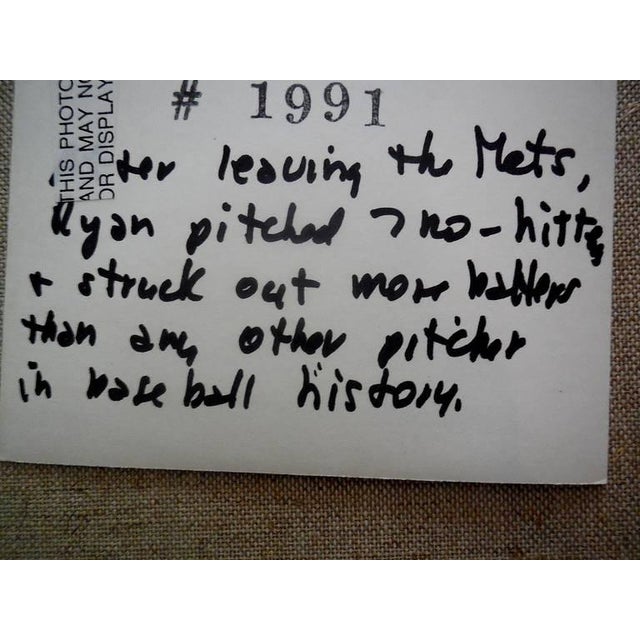 THIS PHOTO
AND MAY NO
OR DISPLAY
# 1991
ter leaving the Mets,
Ryan pitched 7 no-hitters
+ struck out more batters
than any other pitcher
in baseball history.